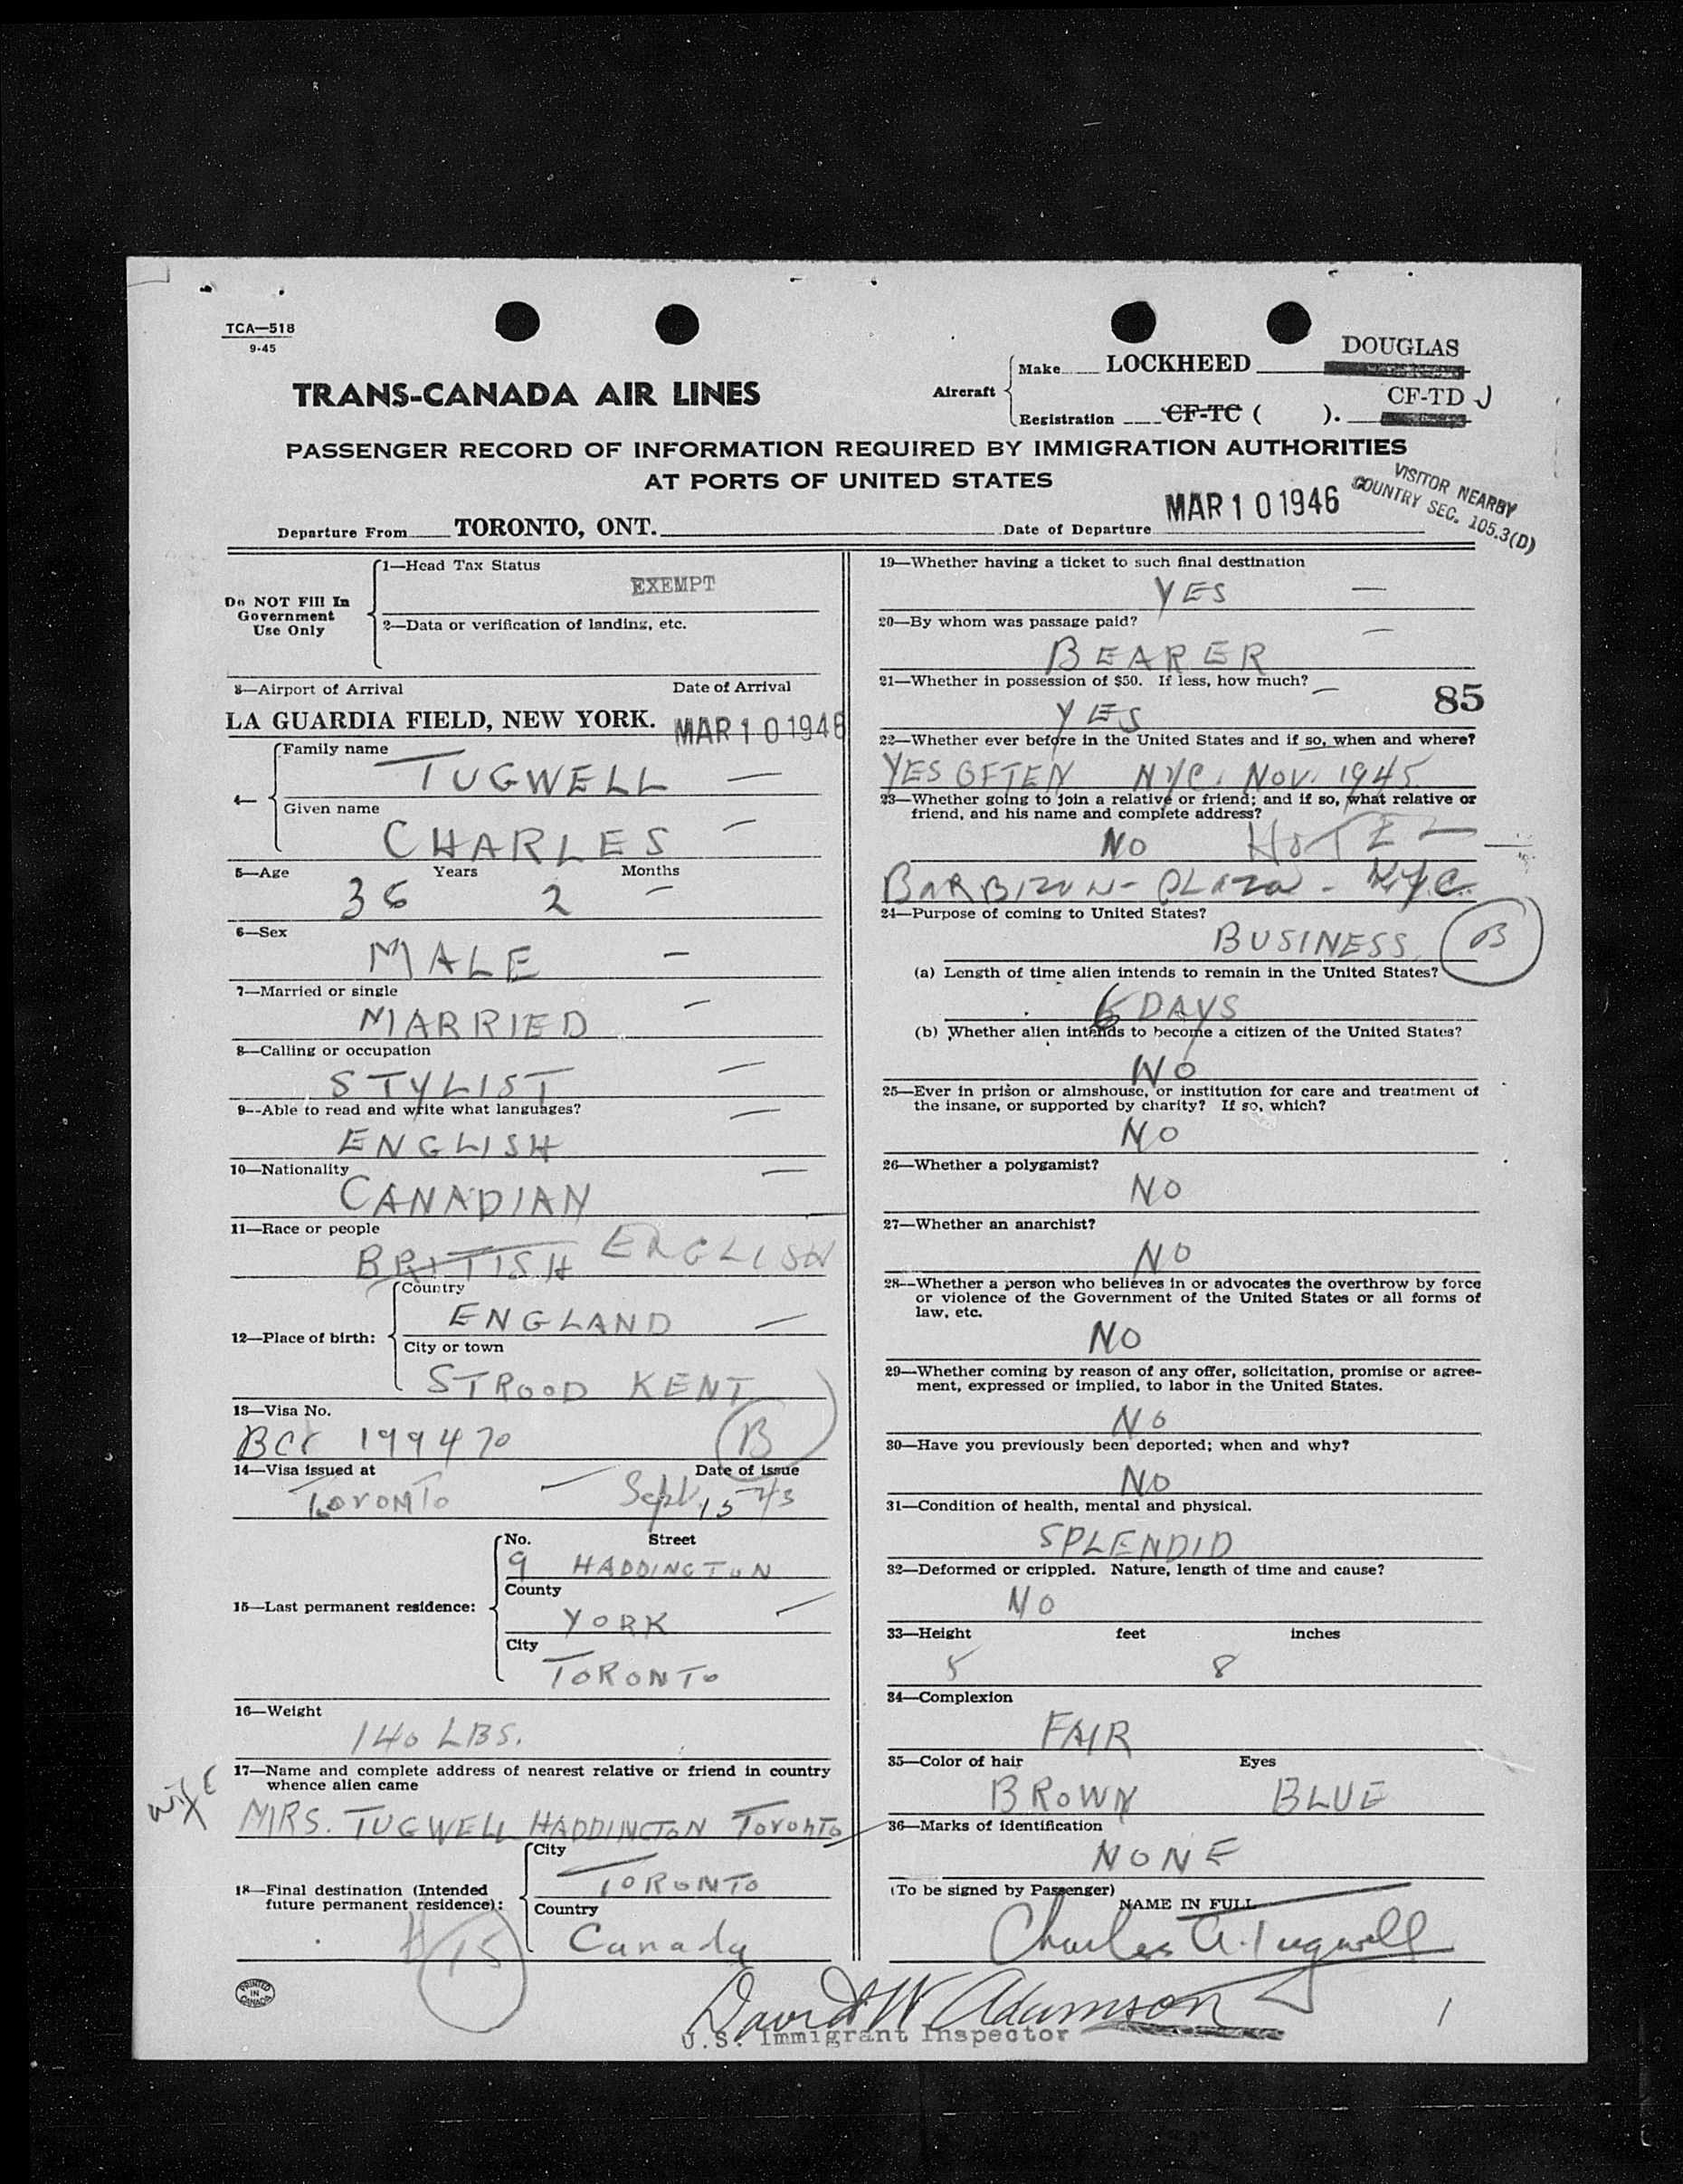 TCA—518
9-45
TRANS-CANADA AIR LINES
Aircraft
Make LOCKHEED DOUGLAS
Registration CF-TC ( ). CF-TD J
PASSENGER RECORD OF INFORMATION REQUIRED BY IMMIGRATION AUTHORITIES
AT PORTS OF UNITED STATES
VISITOR NEARBY
COUNTRY SEC. 105.3(D)
Departure From TORONTO, ONT. Date of Departure MAR 10 1946
Do NOT Fill In
Government
Use Only
1—Head Tax Status
EXEMPT
2—Data or verification of landing, etc.
3—Airport of Arrival Date of Arrival
LA GUARDIA FIELD, NEW YORK. MAR 10 1946
4—
Family name
TUGWELL —
Given name
CHARLES —
5—Age Years Months
36 2 —
6—Sex
MALE —
7—Married or single
MARRIED —
8—Calling or occupation
STYLIST —
9—Able to read and write what languages?
ENGLISH —
10—Nationality
CANADIAN —
11—Race or people
BRITISH ENGLISH
12—Place of birth:
Country
ENGLAND —
City or town
STROOD KENT
13—Visa No.
199470 B
14—Visa issued at Date of issue
Toronto — Sept 15 43
15—Last permanent residence:
No. Street
9 HADDINGTON
County
YORK —
City
TORONTO
16—Weight
140 LBS.
17—Name and complete address of nearest relative or friend in country
whence alien came
wife
MRS. TUGWELL HADDINGTON Toronto
18—Final destination (Intended
future permanent residence):
City
TORONTO
Country
Canada
15
PRINTED
IN
CANADA
19—Whether having a ticket to such final destination
YES —
20—By whom was passage paid?
BEARER —
21—Whether in possession of $50. If less, how much?
YES — 85
22—Whether ever before in the United States and if so, when and where?
YES OFTEN NYC. NOV. 1945.
23—Whether going to join a relative or friend; and if so, what relative or
friend, and his name and complete address?
NO HOTEL
BARBIZON-PLAZA - N.Y.C.
24—Purpose of coming to United States?
BUSINESS. B
(a) Length of time alien intends to remain in the United States?
6 DAYS
(b) Whether alien intends to become a citizen of the United States?
NO
25—Ever in prison or almshouse, or institution for care and treatment of
the insane, or supported by charity? If so, which?
NO
26—Whether a polygamist?
NO
27—Whether an anarchist?
NO
28—Whether a person who believes in or advocates the overthrow by force
or violence of the Government of the United States or all forms of
law, etc.
NO
29—Whether coming by reason of any offer, solicitation, promise or agree-
ment, expressed or implied, to labor in the United States.
NO
30—Have you previously been deported; when and why?
NO
31—Condition of health, mental and physical.
SPLENDID
32—Deformed or crippled. Nature, length of time and cause?
NO
33—Height feet inches
5 8
34—Complexion
FAIR
35—Color of hair Eyes
BROWN BLUE
36—Marks of identification
NONE
(To be signed by Passenger)
NAME IN FULL
Charles A. Tugwell
David W Adamson
U.S. Immigrant Inspector
1